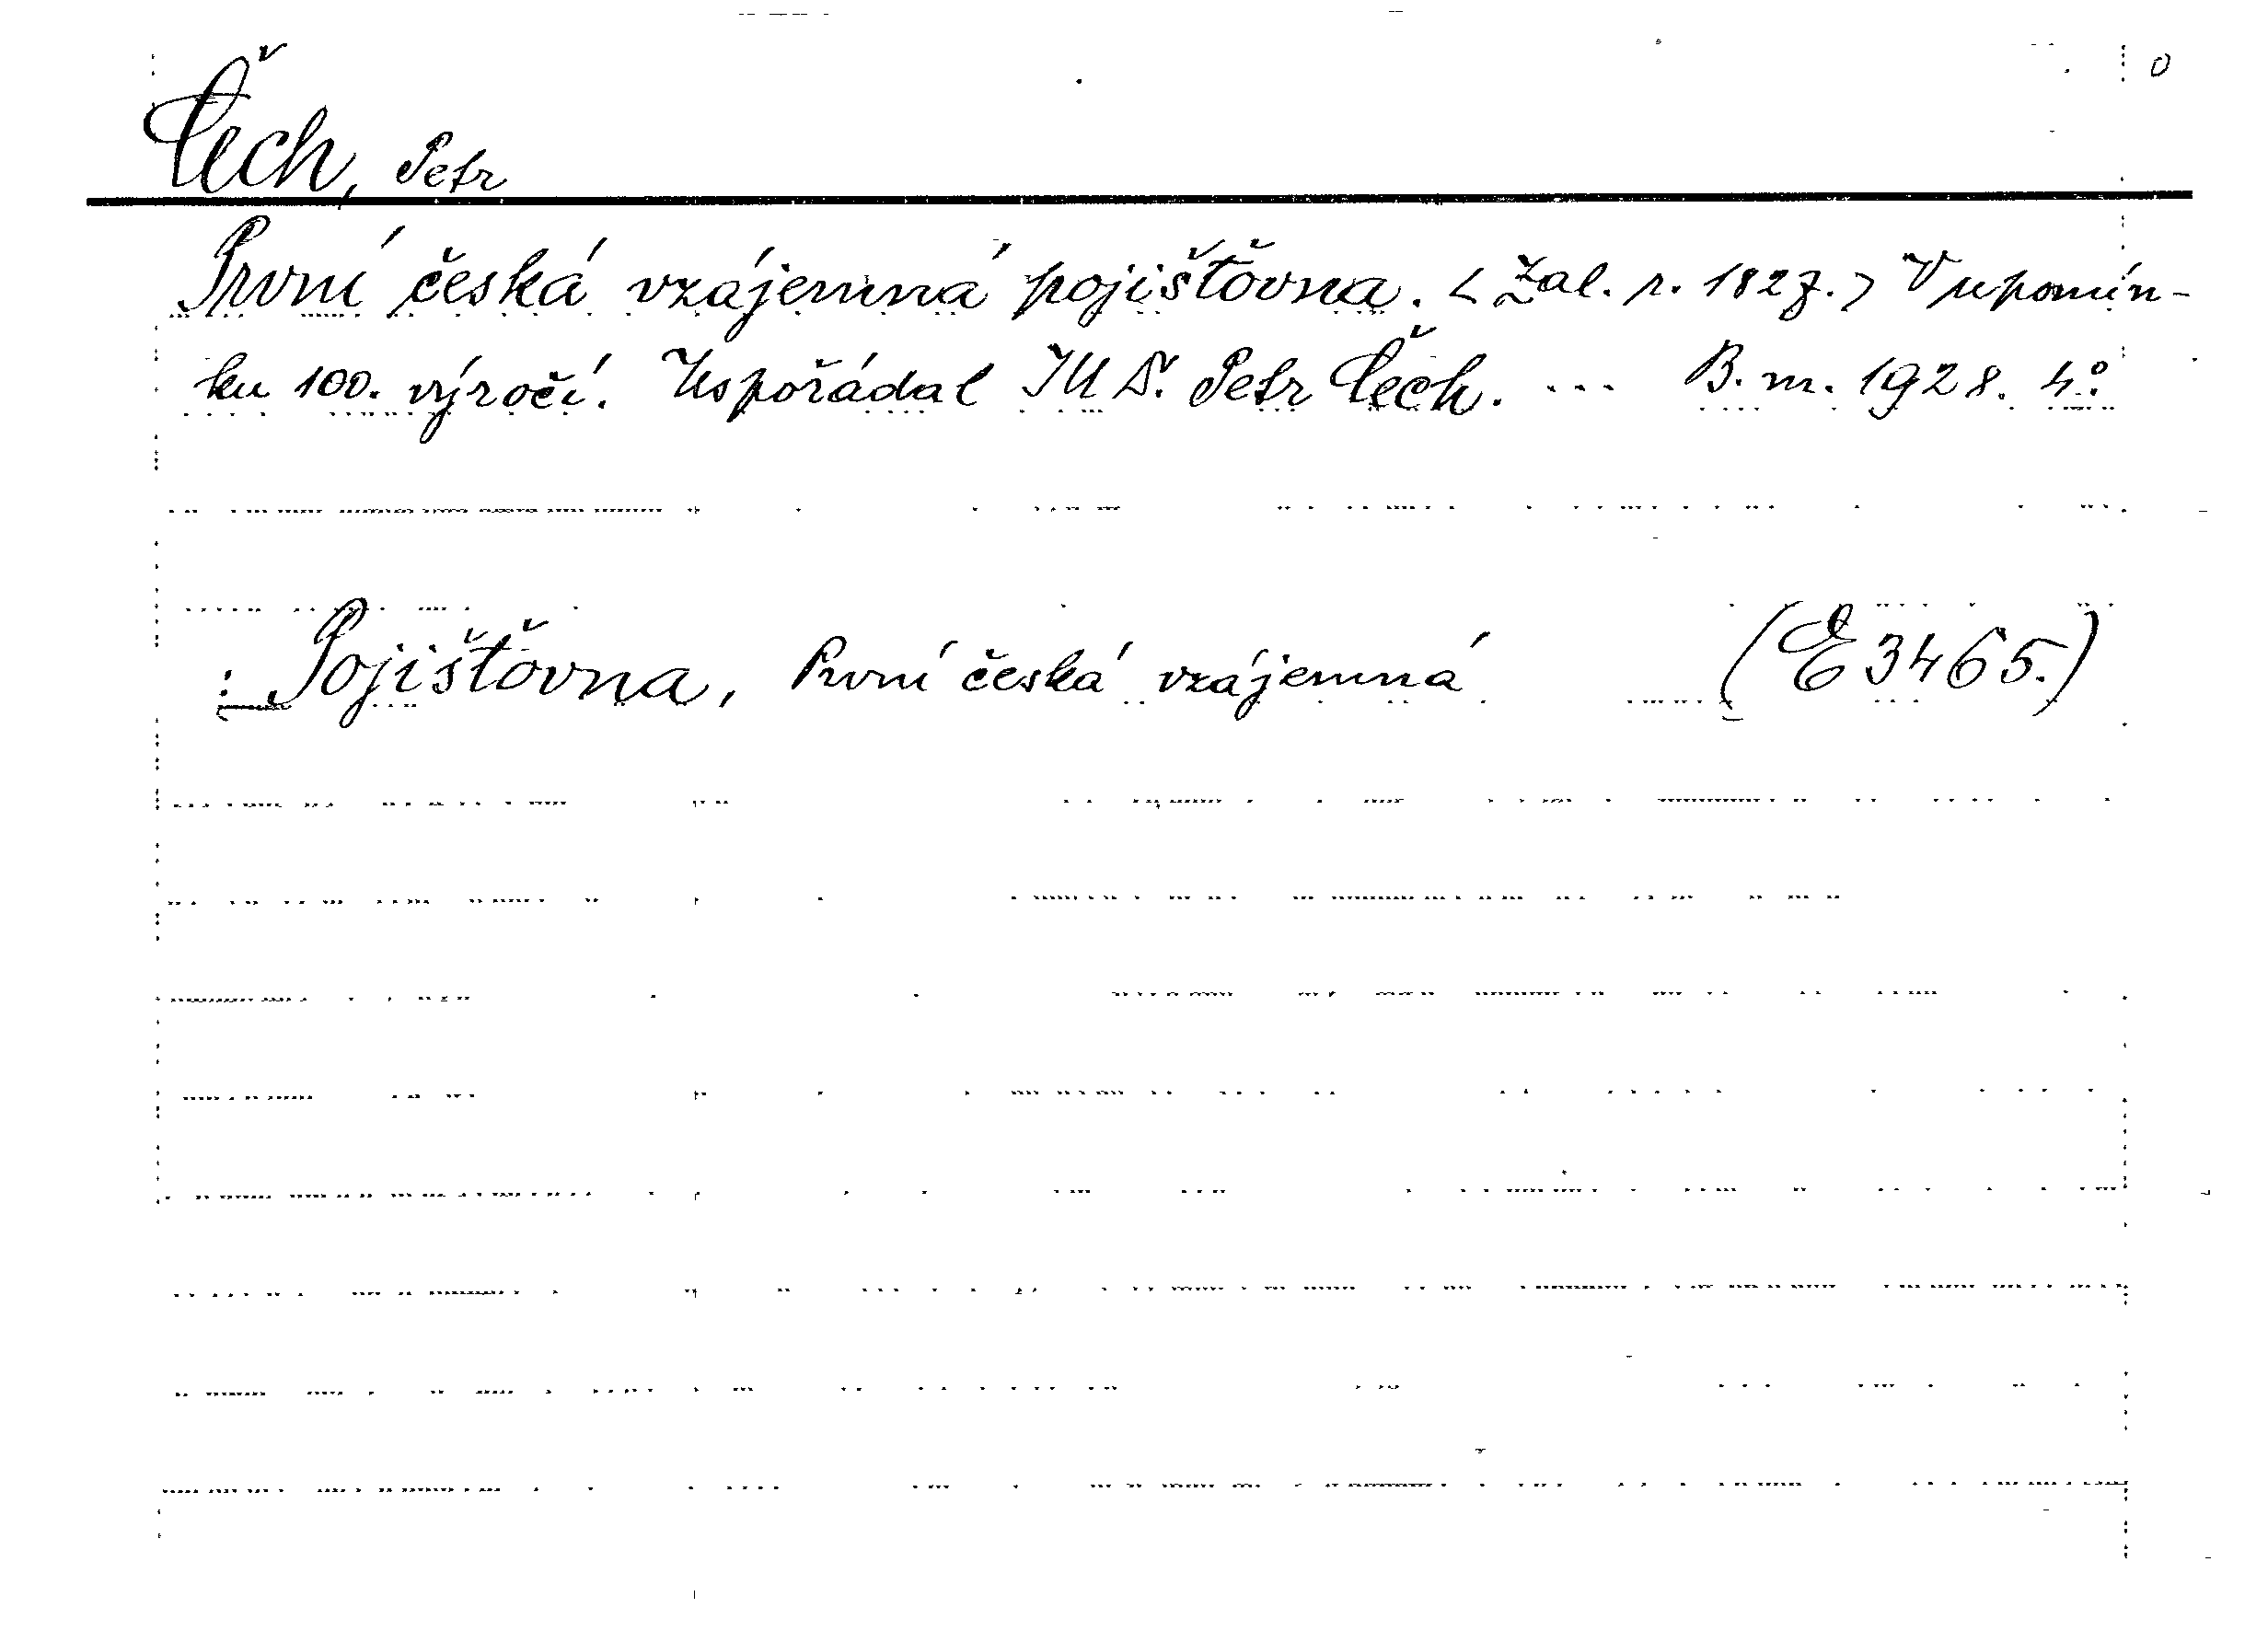 0
Čech, Petr
První česká vzájemná pojišťovna. < Zal. r. 1827. > V upomín-
ku 100. výročí. Uspořádal JUDr. Petr Čech. ... B. m. 1928. 4°.
: Pojišťovna, První česká vzájemná (E 3465.)